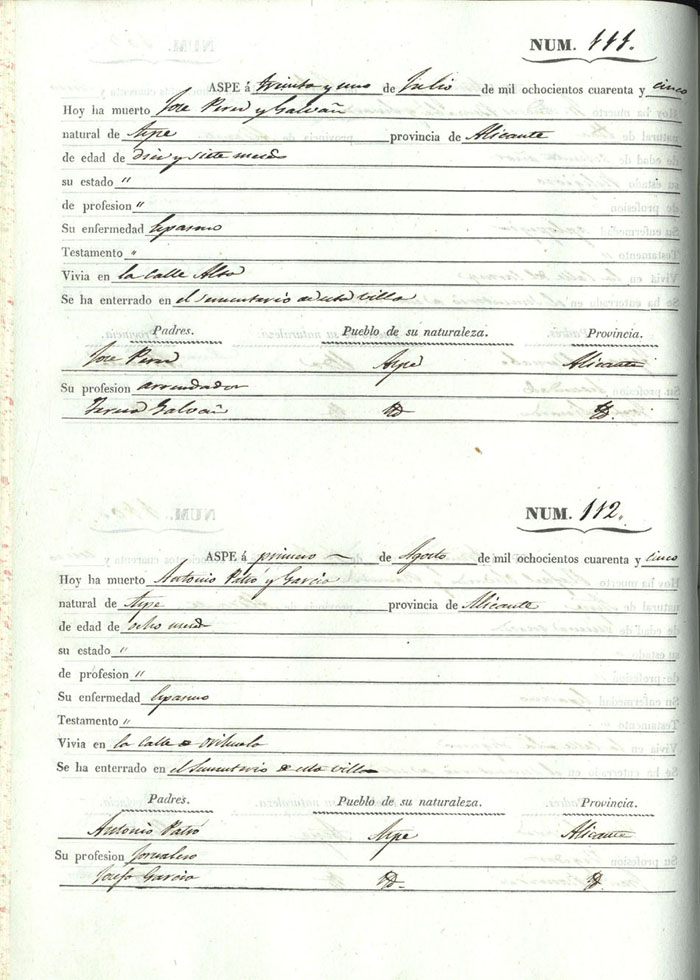 NUM. 111.
ASPE á treinta y uno de Julio de mil ochocientos cuarenta y cinco
Hoy ha muerto Jose Perez y Galvañ
natural de Aspe provincia de Alicante
de edad de diez y siete meses
su estado "
de profesion "
Su enfermedad Espasmo
Testamento "
Vivia en la calle Alta
Se ha enterrado en el sementerio de esta villa
Padres. Pueblo de su naturaleza. Provincia.
Jose Perez Aspe Alicante
Su profesion arrendador
Teresa Galvañ Yd Yd.
NUM. 112.
ASPE á primero de Agosto de mil ochocientos cuarenta y cinco
Hoy ha muerto Antonio Patró y Garcia
natural de Aspe provincia de Alicante
de edad de ocho meses
su estado "
de profesion "
Su enfermedad Espasmo
Testamento "
Vivia en la Calle de Orihuela
Se ha enterrado en el Sementerio de esta villa
Padres. Pueblo de su naturaleza. Provincia.
Antonio Patró Aspe Alicante
Su profesion Jornalero
Josefa Garcia Yd. Yd.